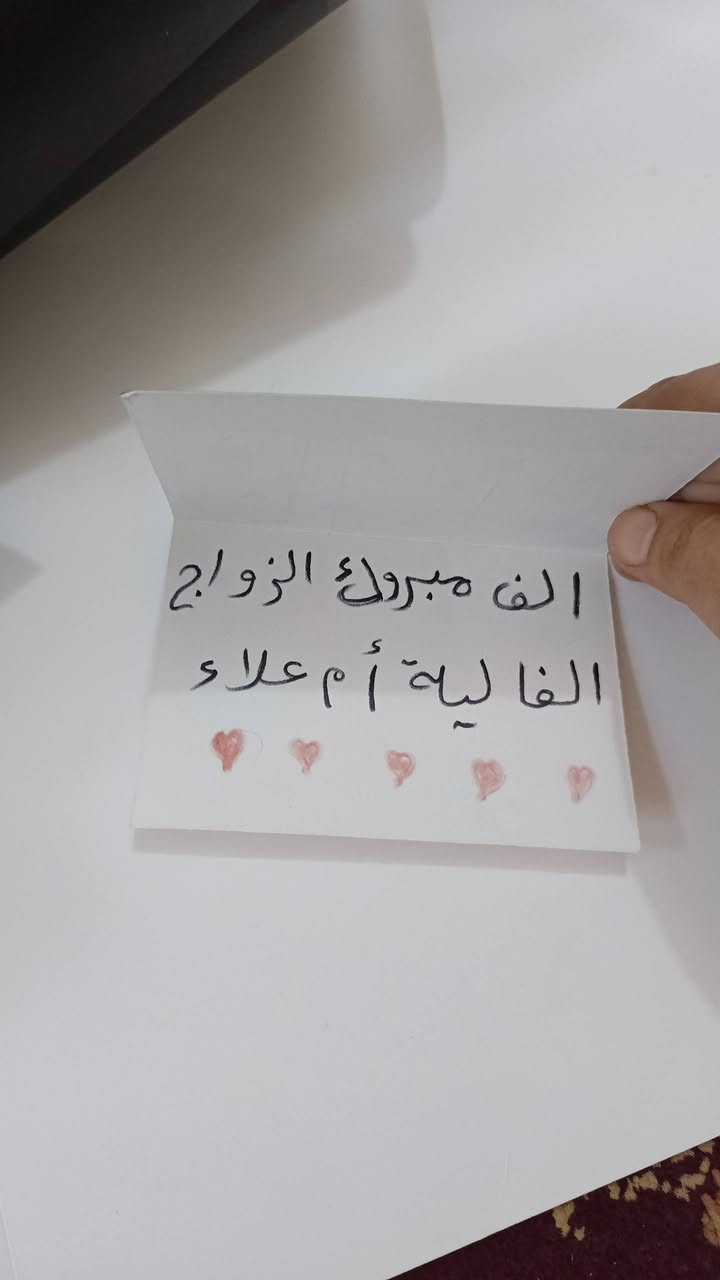 الف مبروك الزواج
الغالية أم علاء